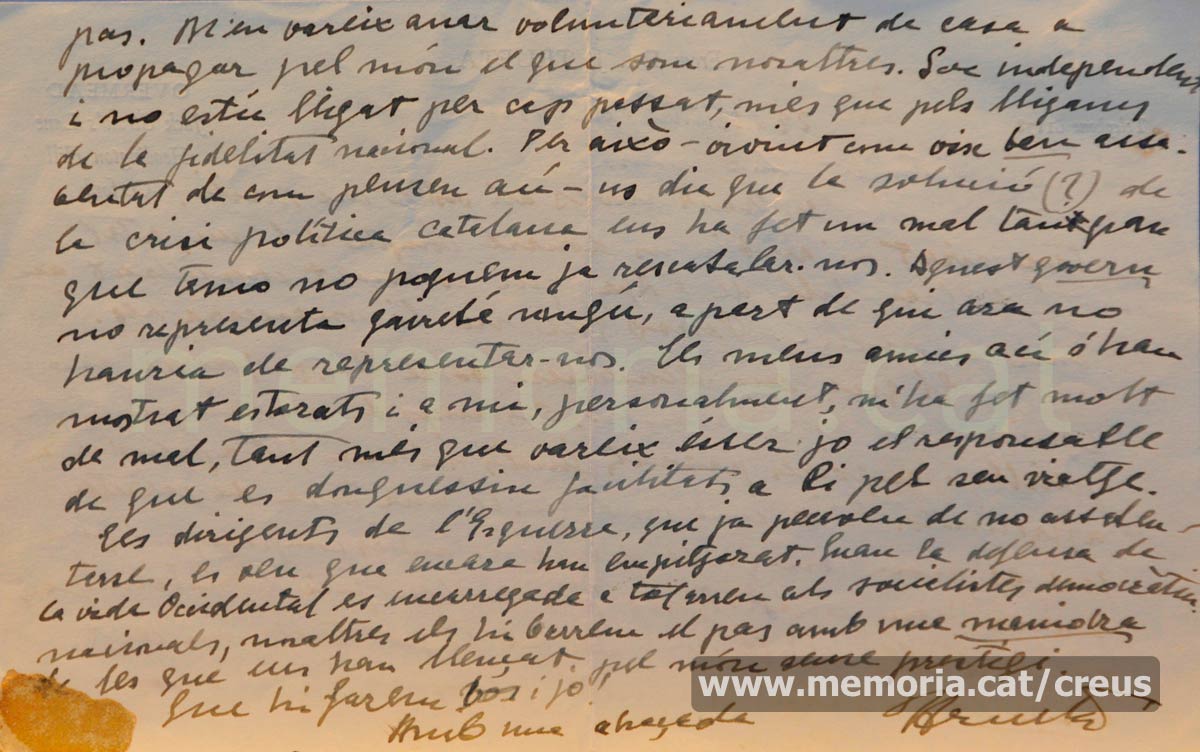 pas. M'en vareix anar voluntariament de casa a
propagar pel món el que som nosaltres. Soc independent
i no estic lligat per cap passat, més que pels lligams
de la fidelitat nacional. Per això – vivint com visc ben assa-
bentat de com pensen ací – us dic que la solució (?) de
la crisi política catalana ens ha fet un mal tant gran
que temo no poguem ja rescabalar-nos. Aquest govern
no representa gairebé ningú, apart de qui ara no
hauria de representar-nos. Els meus amics ací s'han
mostrat estorats i a mi, personalment, m'ha fet molt
de mal, tant més que vareix ésser jo el responsable
de que es donguessin facilitats a Pi pel seu viatge.
Els dirigents de l'Esquerra, que ja
es veu que encara han empitjorat. Quan la defensa de
la vida Occidental es encarregada a tot arreu als socialistes
nacionals, nosaltres els hi barrem el pas amb una
de les que ens han llençat pel món sense prestigi.
Que hi farem vós i jo
Amb una abraçada
memoria.cat
www.memoria.cat/creus